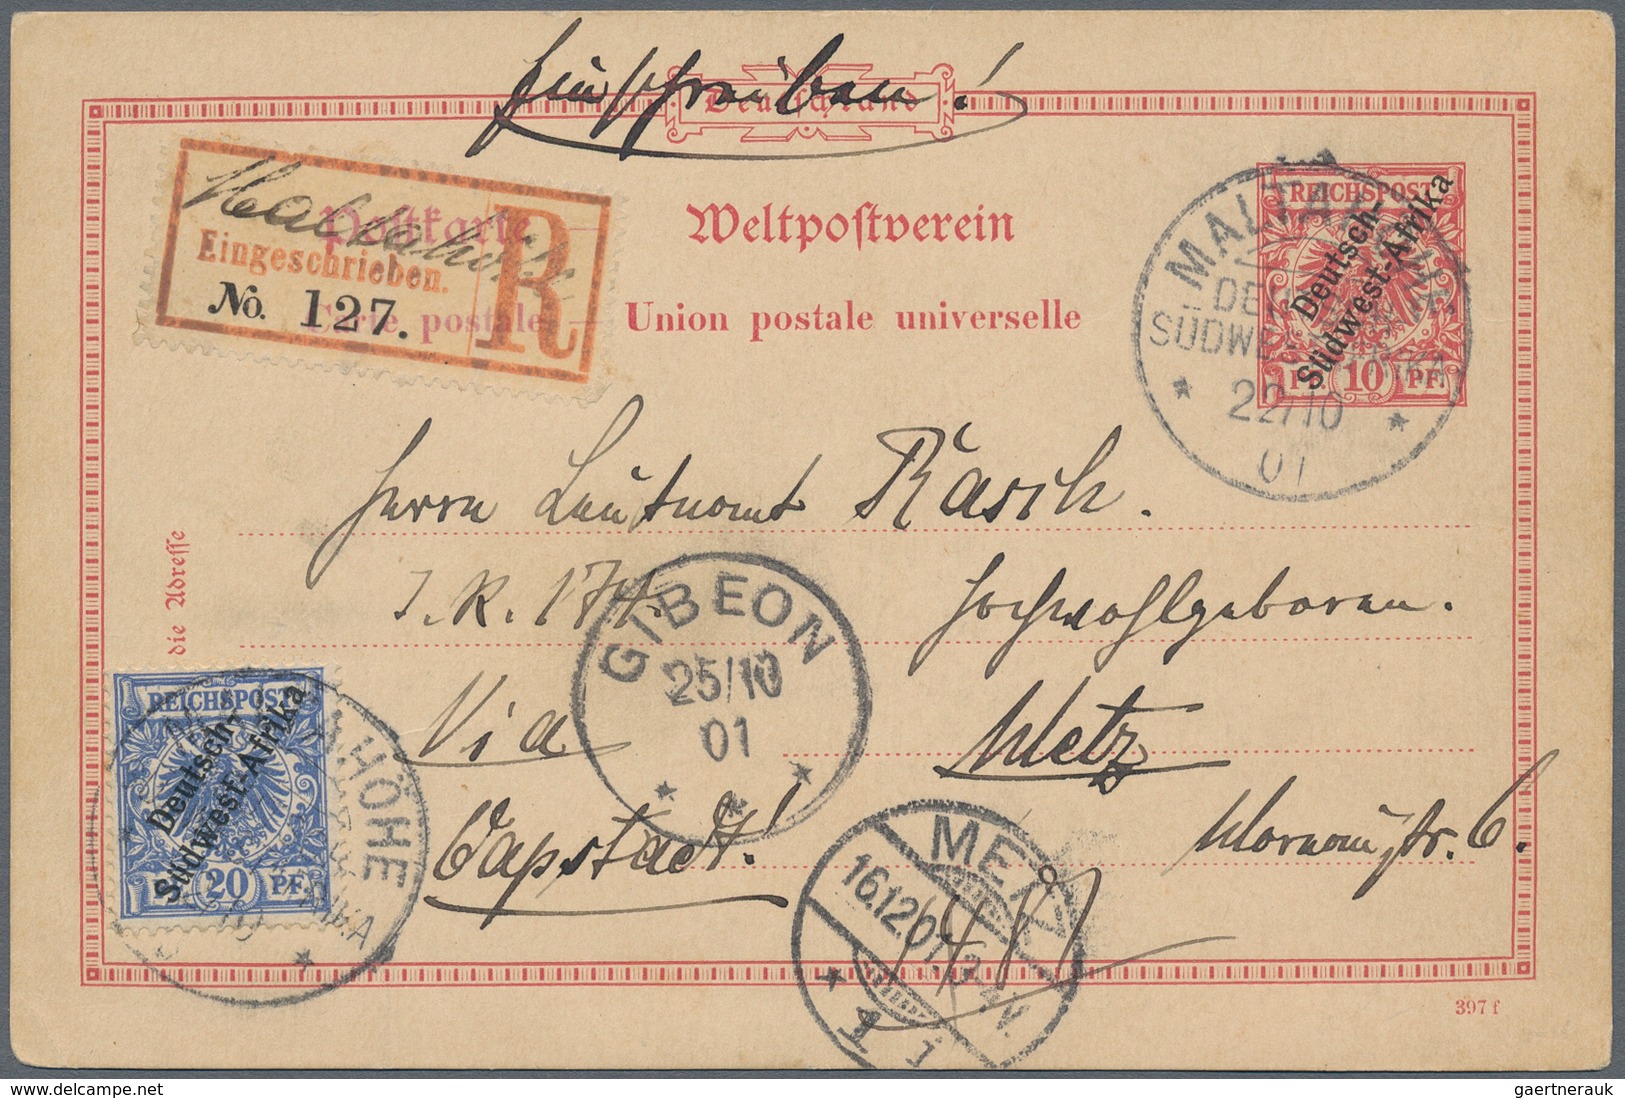 Einschreiben!
Deutschland
Maltahöhe
Postkarte
Eingeschrieben.
No. 127.
R
Carte postale
Weltpostverein
Union postale universelle
REICHSPOST
Deutsch-
Südwest-Afrika
10 PF
MALTAHÖHE
DEUTSCH
SÜDWESTAFRIKA
22/10
01
Herrn Leutnant Rasch.
I.R. 174.
Hochwohlgeboren.
Via
Metz
Capstadt!
str. 6.
die Adresse
GIBEON
25/10
01
REICHSPOST
Deutsch-
Südwest-Afrika
20 PF
MALTAHÖHE
METZ
16.12.01.
V.
1
397 f
gaertnerauk